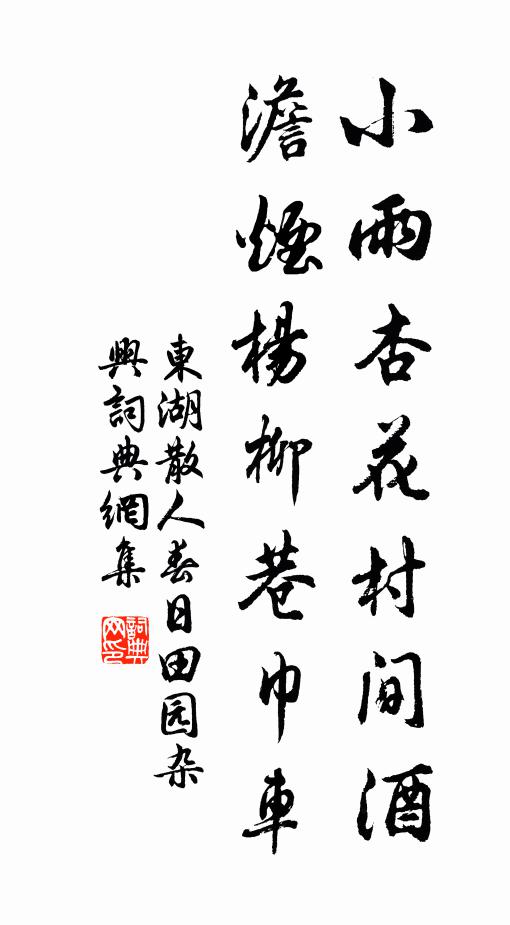 小雨杏花村间酒
澹煙楊柳巷巾車
東湖散人春日田园杂
興詞典網集
詞典网印